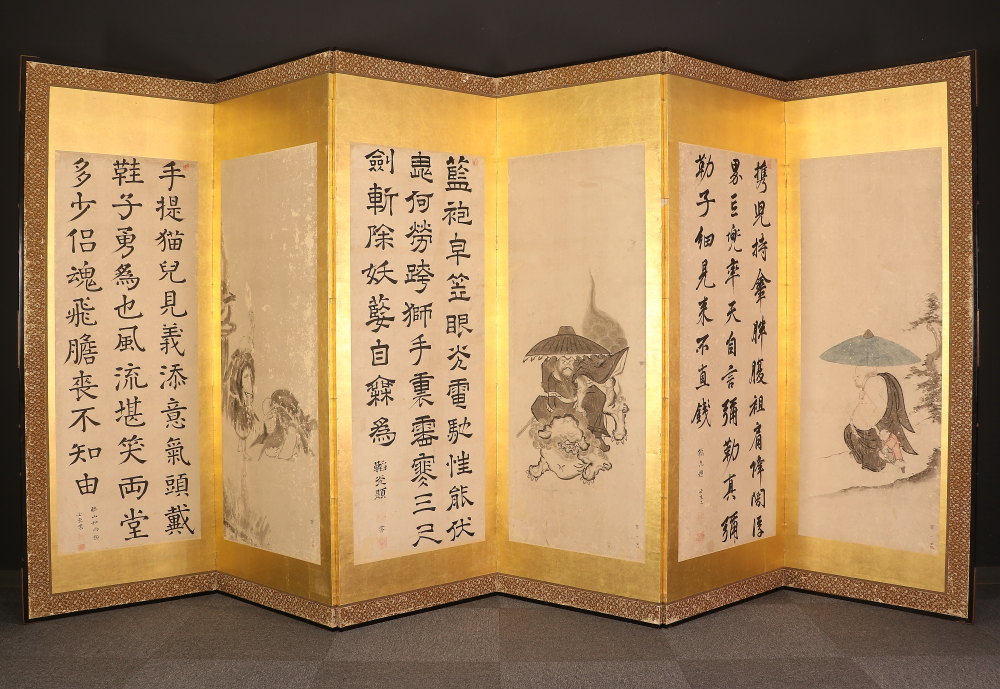 携児持傘胖腹袒肩降閻浮
界兜率天自言彌勒真彌
勒子細見来不直錢
藍袍皁笠眼炎電馳性能伏
鬼何勞跨獅手裏霜寒三尺
劍斬除妖孽自為
手提猫兒見義添意氣頭戴
鞋子勇為也風流堪笑両堂
多少侶魂飛膽喪不知由